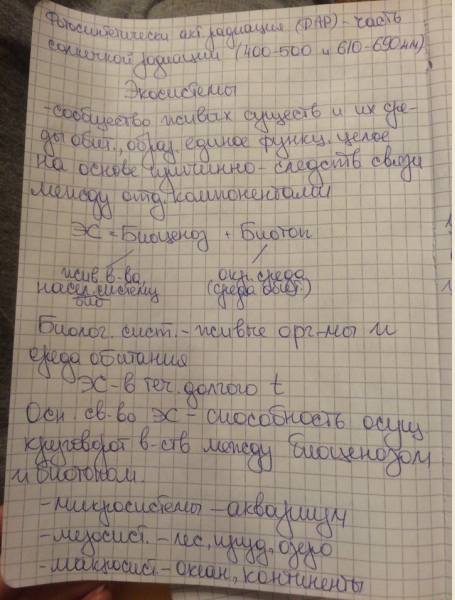 Фотосинтетически акт. радиация (ФАР) - часть
солнечной радиации (400-500 и 610-690 нм)
Экосистемы
- сообщество живых существ и их сре-
ды обит., образ. единое функц. целое
на основе причинно-следств связи
между отд. компонентами
ЭС = Биоценоз + Биотоп
жив в-ва, окр. среда
насел. систему (среда обит.)
био
Биолог. сист. - живые орг-мы и
среда обитания
ЭС - в теч. долгого t
Осн. св-во ЭС - способность осущ
круговорот в-ств между биоценозом
и биотопом.
- микросистемы - аквариум
- мезосист. - лес, пруд, озеро
- макросист - океан, континенты